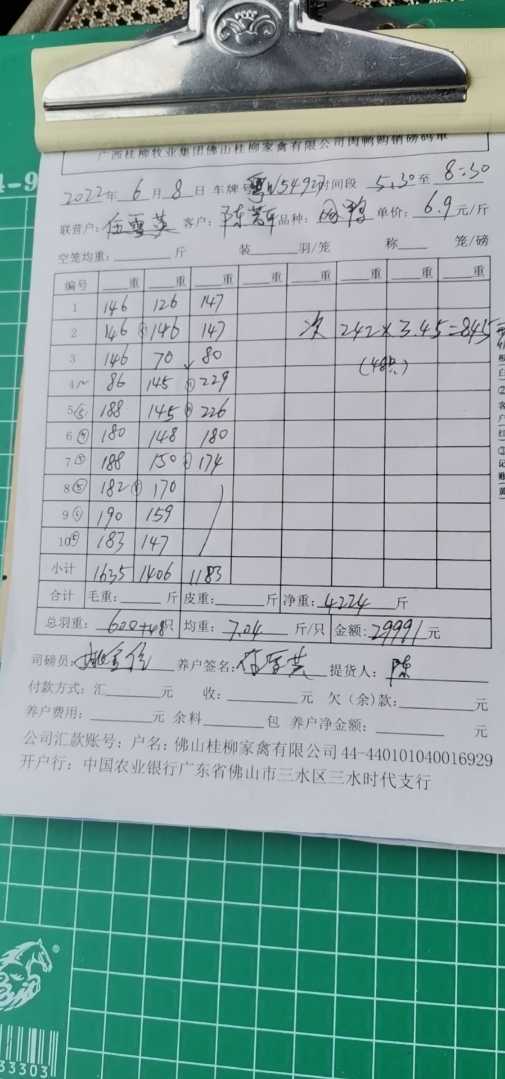 广西桂柳牧业集团佛山桂柳家禽有限公司肉鸭购销磅码单
2022年 6 月 8 日 车牌号 时间段 5:30 至 8:30
联营户: 客户: 陈 品种: 肉鸭 单价: 6.9 元/斤
空笼均重: 斤 装 羽/笼 称 笼/磅
编号 重 重 重 重 重 重 重
1 146 126 147
2 146 146 147 次 242×3.45=845
3 146 70 80 (48只)
4 86 145 229
5 188 145 226
6 180 148 180
7 188 150 174
8 182 170
9 190 159
10 183 147
小计 1635 1406 1183
合计 毛重: 斤 皮重: 斤 净重: 4224 斤
总羽重: 600+48 只 均重: 7.04 斤/只 金额: 29991 元
司磅员: 养户签名: 提货人: 陈
付款方式: 汇 元 收: 元 欠(余)款: 元
养户费用: 元 余料 包 养户净金额: 元
公司汇款账号: 户名: 佛山桂柳家禽有限公司 44-440101040016929
开户行: 中国农业银行广东省佛山市三水区三水时代支行
33303